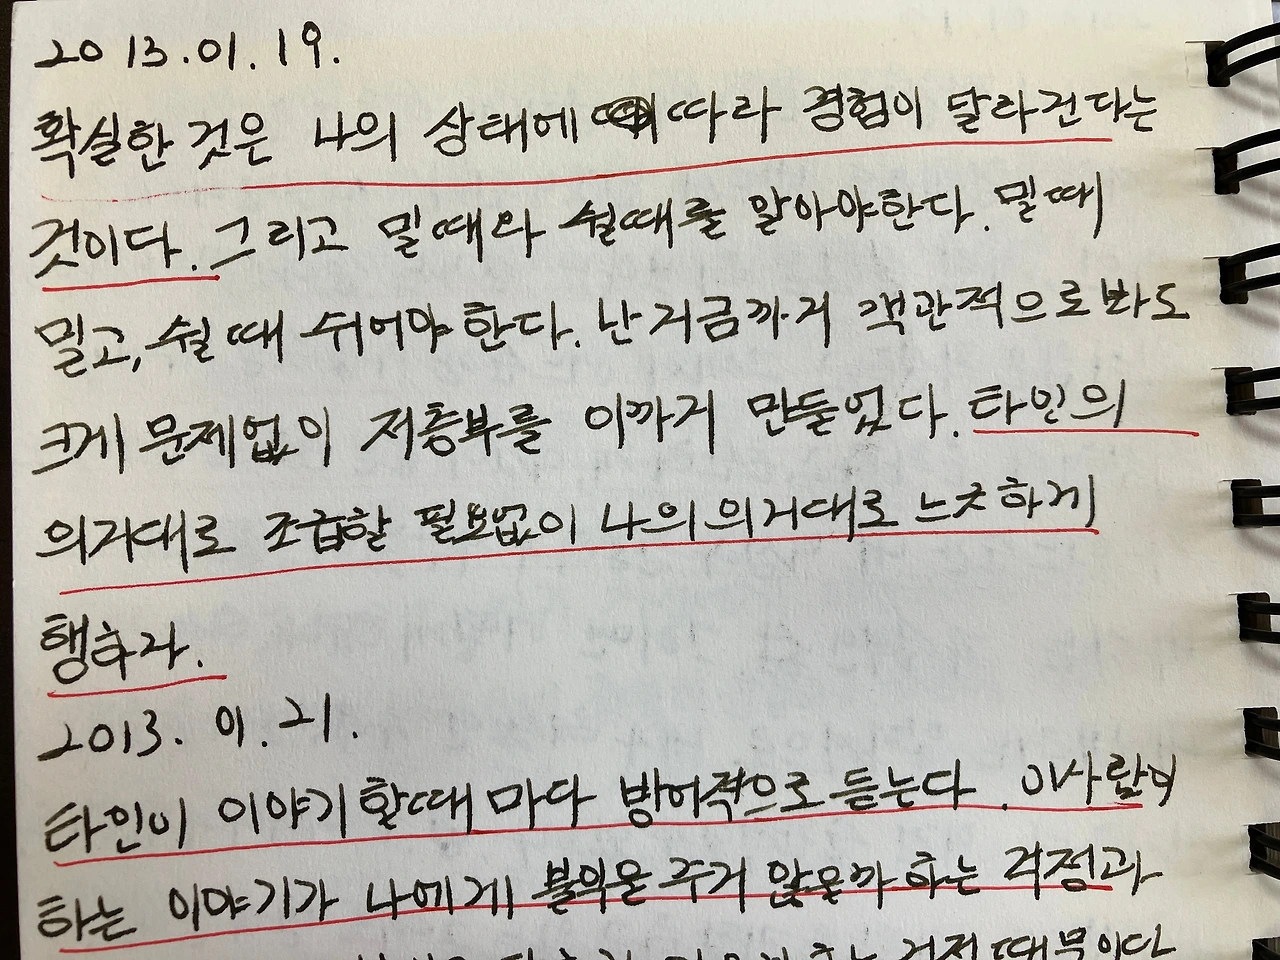 2013.01.19.
확실한 것은 나의 상태에 따라 경험이 달라진다는
것이다. 그리고 밀때와 쉴때를 알아야한다. 밀때
밀고, 쉴때 쉬어야 한다. 난 지금까지 객관적으로 봐도
크게 문제없이 저층부를 이까지 만들었다. 타인의
의지대로 조급할 필요없이 나의 의지대로 느긋하게
행하라.
2013. 01. 21.
타인이 이야기 할때 마다 방어적으로 듣는다. 이사람이
하는 이야기가 나에게 불익은 주지 않을까 하는 걱정과
하는 걱정 때문이다